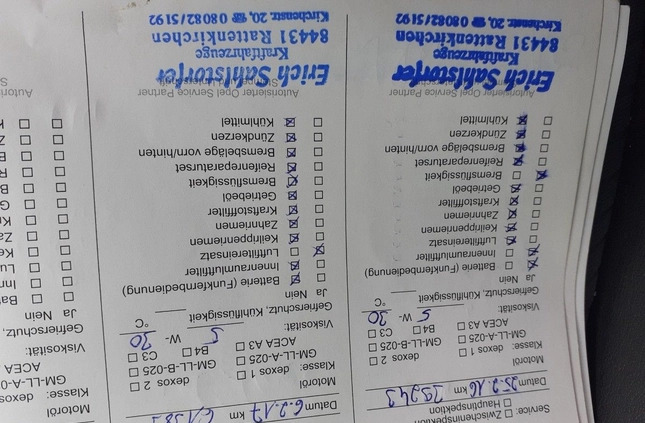 Service: ☐ Zwischeninspektion
☐ Hauptinspektion
Datum 25.2.16 km 39243
Motoröl
Klasse: ☐ dexos 1 ☐ dexos 2
☐ GM-LL-A-025 ☐ GM-LL-B-025
☐ ACEA A3 ☐ B4 ☐ C3
Viskosität: 5 W- 30
Gefrierschutz, Kühlflüssigkeit °C
Ja Nein
Batterie (Funkfernbedienung)
Innenraumluftfilter
Luftfiltereinsatz
Keilrippenriemen
Zahnriemen
Kraftstofffilter
Getriebeöl
Bremsflüssigkeit
Reifenreparaturset
Bremsbeläge vorn/hinten
Zündkerzen
Kühlmittel
Autorisierter Opel Service Partner
Erich Sahlstorfer
Kraftfahrzeuge
84431 Rattenkirchen
Kirchenstr. 20, ☎ 08082/5192
Datum 6.2.17 km
Motoröl
Klasse: ☐ dexos 1 ☐ dexos 2
☐ GM-LL-A-025 ☐ GM-LL-B-025
☐ ACEA A3 ☐ B4 ☐ C3
Viskosität: 5 W- 30
Gefrierschutz, Kühlflüssigkeit °C
Ja Nein
Batterie (Funkfernbedienung)
Innenraumluftfilter
Luftfiltereinsatz
Keilrippenriemen
Zahnriemen
Kraftstofffilter
Getriebeöl
Bremsflüssigkeit
Reifenreparaturset
Bremsbeläge vorn/hinten
Zündkerzen
Kühlmittel
Autorisierter Opel Service Partner
Erich Sahlstorfer
Kraftfahrzeuge
84431 Rattenkirchen
Kirchenstr. 20, ☎ 08082/5192
Motoröl
Klasse: dexos
GM-LL-A-0
ACEA
Viskosität:
Gefrierschutz,
Ja Nein
Ba
Inn
Lu
Ke
Za
Kr
G
B
R
B
Z
K
Autoris